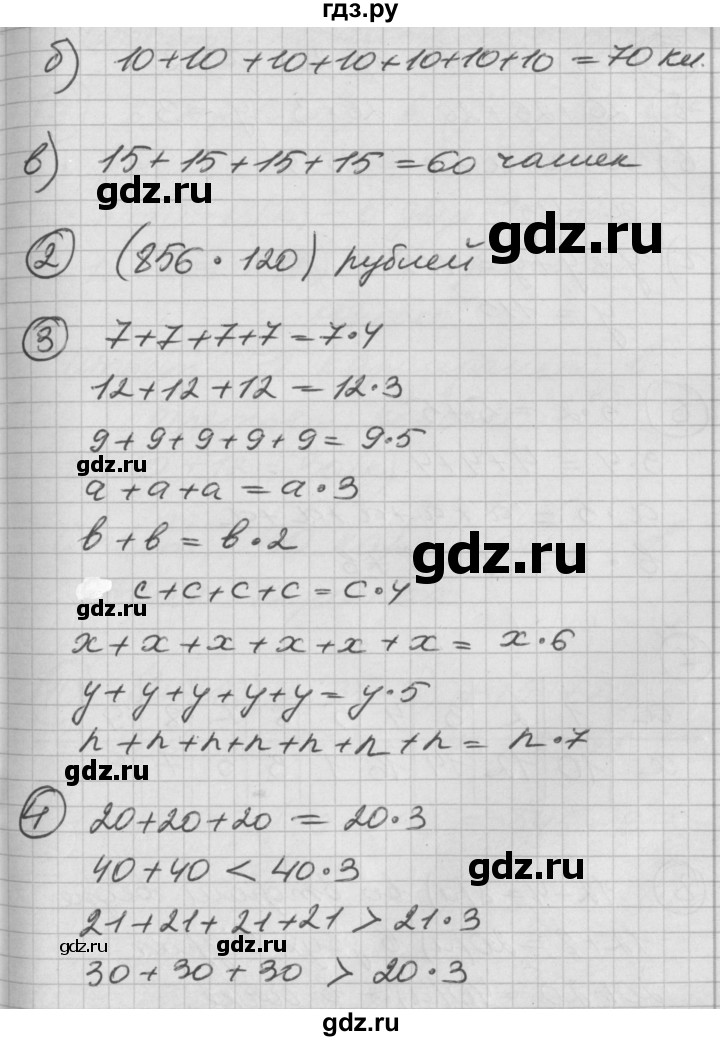 гдз.ру
б) 10+10+10+10+10+10+10=70 кл.
в) 15+15+15+15=60 чашек
gdz.ru
gdz.ru
2 (856·120) рублей
3 7+7+7+7=7·4
12+12+12=12·3
9+9+9+9+9=9·5
gdz.ru
a+a+a=a·3
в+в=в·2
gdz.ru
c+c+c+c=c·4
gdz.ru
x+x+x+x+x+x=x·6
y+y+y+y+y=y·5
n+n+n+n+n+n+n=n·7
gdz.ru
4 20+20+20=20·3
40+40<40·3
gdz.ru
21+21+21+21>21·3
gdz.ru
gdz.ru
30+30+30>20·3
gdz.ru